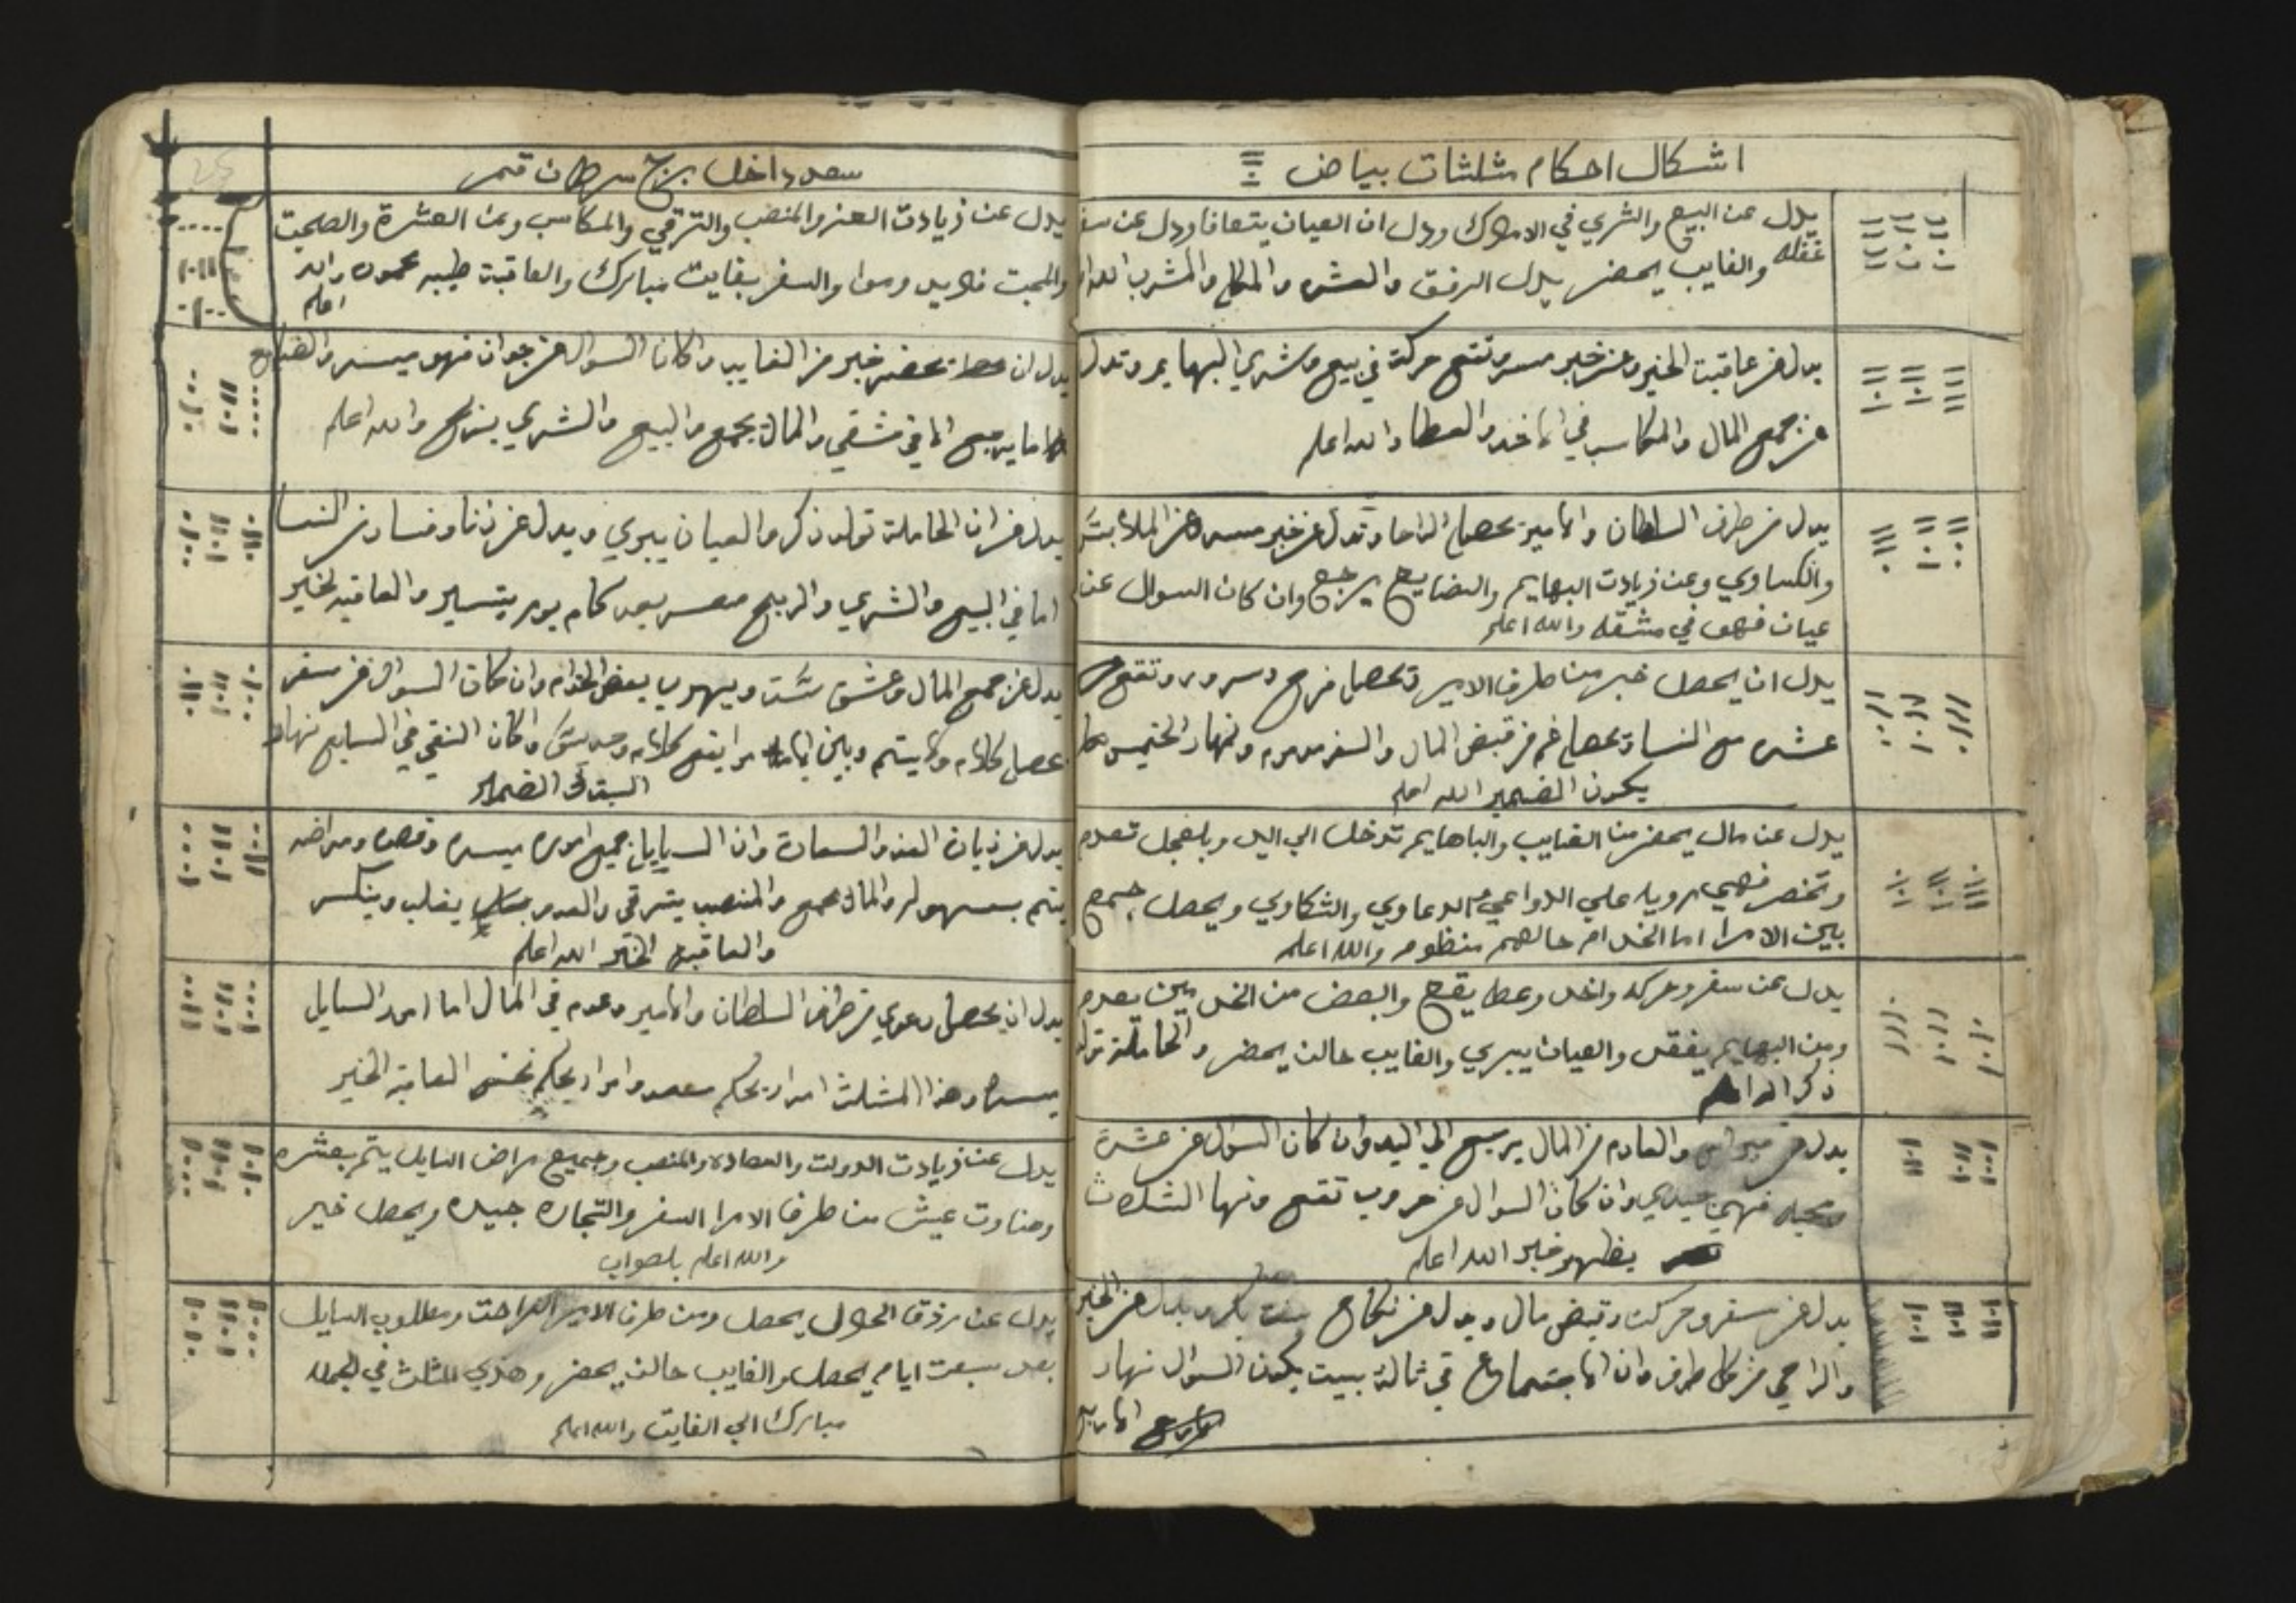 اشكال احكام مثلثات بياض
يدل عن البيع والشري في الاملاك ودل ان العيان يتعافا ودل عن سفر
غفله والغايب يحضر يدل الرفق والعشره والمكل والمشرب الله ا
يدل عن عاقبت الخير وعن خبر مسر وتقع حركة في بيع وشري البهايم وتدل
عن جمع المال والمكاسب في الاخد والعطا والله اعلم
يدل من طرف السلطان والامير تحصل الراحا وتدل عن خبر مسره عن الملابس
والكساوي وعن زيادت البهايم والبضايع يرجع وان كان السوال عن
عيان فهو في مشقه والله اعلم
يدل ان يحصل خبر من طرف الامير وتحصل فرح وسرور وتقع
عشره مع النسا وتحصل غم من قبض المال والسفر ونهار الخميس
يكون الضمير الله اعلم
يدل عن مال يحضر من الغايب والباهايم تدخل الي اليد وبلعجل تعدم
وتخضر فهي رويا علي الدواعي والدعاوي والشكاوي ويحصل جمع
بين الامرا اما الخدام حالهم منظوم والله اعلم
يدل عن سفر وحركه واخد وعطا يقع والبعض من الخدامين يعدم
ومن البهايم يفقد والعيان يبري والغايب حالن يحضر والحاملة تولد
ذكر الله اعلم
يدل عن والعادم من المال يرجع الي اليد وان كان السوال عن عشرة
ومحبه فهي جيدي وان كان السوال عن حروب تقع ونهار الثلاث
يظهر خبر الله اعلم
يدل عن سفر وحركت وقبض مال ويدل عن نكاح بنت بكر ويدل عن الخير
والراحي من كل طرف وان الاجتماع في ثالث بيت يكون السوال نهار
الاربع
سعد داخل برج سرطان قمر
يدل عن زيادت العز والمنصب والترقي والمكاسب وعن العشرة والصحبت
والمحبت والسفر بغايت مبارك والعاقبت طيبه محموده والله
اعلم
يدل ان يحضر خبر من الغايب واكان السوال عن حيوان فهو ميسر والضايع
ما يرجع الا في مشقي والمال يجمع والبيع والشري يربح والله اعلم
يدل عن ان الحاملة تولد ذكر والعيان يبري ويدل عن زنا وفساد من النسا
اما في البيع والشري والربح معسر بعد كام يوم يتسير والعاقبه لخير
يدل عن جمع المال وعشق ست ويهرب بعض الخدام وان كان السوال عن سفر
يحصل كلام ولا يتم وبين الامرا يقع كلام وحديث واكان النقي في السابع نهار
السبت الضمير
يدل عن زيادت العز والسعادة وان السايل جميع اموره ميسره وقصده ومراضه
يتم بسهوله والمال يجمع والمنصب يترقي والعدو يغلب وينكسر
والعاقبه الخير الله اعلم
يدل ان يحصل دعوي من طرف السلطان والامير وعدم في المال اما امور السايل
ميسره وهذا المثلث امرار يحكم سعد وامرار يحكم نحس العاقبة الخير
يدل عن زيادت الدولت والسعاده والمنصب وجميع مراض السايل يتم بعشره
وحناوت عيش من طرف الامرا السفر والتجاره جيده ويحصل خير
والله اعلم بلصواب
يدل عن رزق الحلال يحصل ومن طرف الامير الراحت ومطلوب السايل
بعد سبعت ايام يحصل والغايب حالن يحضر وهذي المثلث في الجمله
مبارك الي الغايت والله اعلم